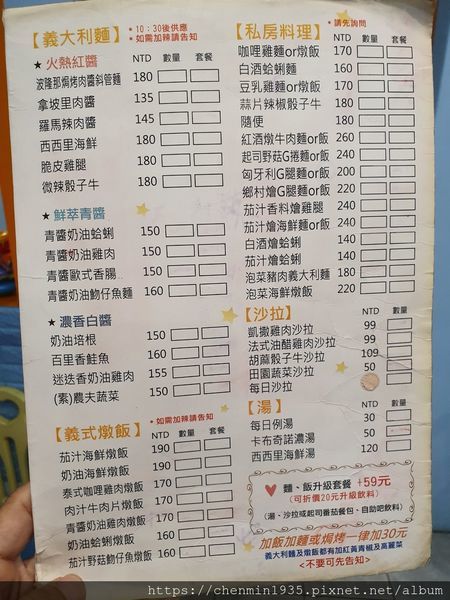 【義大利麵】
*10：30後供應
*如需加辣請告知
★火熱紅醬 NTD 數量 套餐
波隆那焗烤肉醬斜管麵 180
拿坡里肉醬 135
羅馬辣肉醬 145
西西里海鮮 180
脆皮雞腿 180
微辣骰子牛 180
★鮮萃青醬
青醬奶油蛤蜊 150
青醬奶油雞肉 150
青醬歐式香腸 150
青醬奶油魩仔魚麵 160
★濃香白醬
奶油培根 150
百里香鮭魚 160
迷迭香奶油雞肉 155
(素)農夫蔬菜 150
*如需加辣請告知
【義式燉飯】 NTD 數量 套餐
茄汁海鮮燉飯 190
奶油海鮮燉飯 190
泰式咖哩雞肉燉飯 170
肉汁牛肉片燉飯 170
青醬奶油雞肉燉飯 170
奶油蛤蜊燉飯 160
茄汁野菇魩仔魚燉飯 160
【私房料理】
*請先詢問
NTD 數量 套餐
咖哩雞麵or燉飯 170
白酒蛤蜊麵 160
豆乳雞麵or燉飯 170
蒜片辣椒骰子牛 170
隨便 180
紅酒燉牛肉麵or飯 260
起司野菇G捲麵or飯 240
匈牙利G腿麵or飯 200
鄉村燴G腿麵or飯 220
茄汁香料燴雞腿 240
茄汁燴海鮮麵or飯 240
白酒燴蛤蜊 140
茄汁燴蛤蜊 140
泡菜豬肉義大利麵 180
泡菜海鮮燉飯 220
【沙拉】 NTD 數量
凱撒雞肉沙拉 99
法式油醋雞肉沙拉 99
胡蔴骰子牛沙拉 109
田園蔬菜沙拉 50
每日沙拉
【湯】 NTD 數量
每日例湯 30
卡布奇諾濃湯 50
西西里海鮮湯 120
♥ 麵、飯升級套餐 +59元
(可折價20元升級飲料)
(湯、沙拉或起司番茄餐包、自助吧飲料)
加飯加麵或焗烤一律加30元
義大利麵及燉飯都有加紅黃青椒及高麗菜
<不要可先告知>
https://chenmin1935.pixnet.net/album